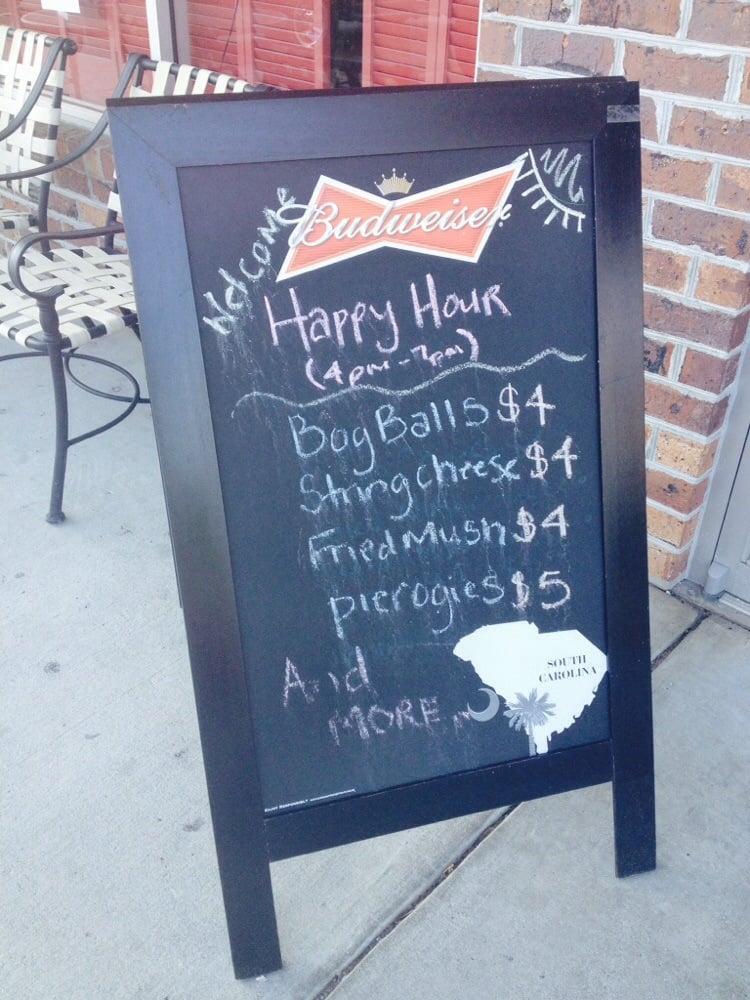 Welcome
Budweiser
Happy Hour
(4pm-7pm)
Bog Balls $4
String cheese $4
Fried Mush $4
pierogies $5
And
MORE
SOUTH
CAROLINA
ENJOY RESPONSIBLY